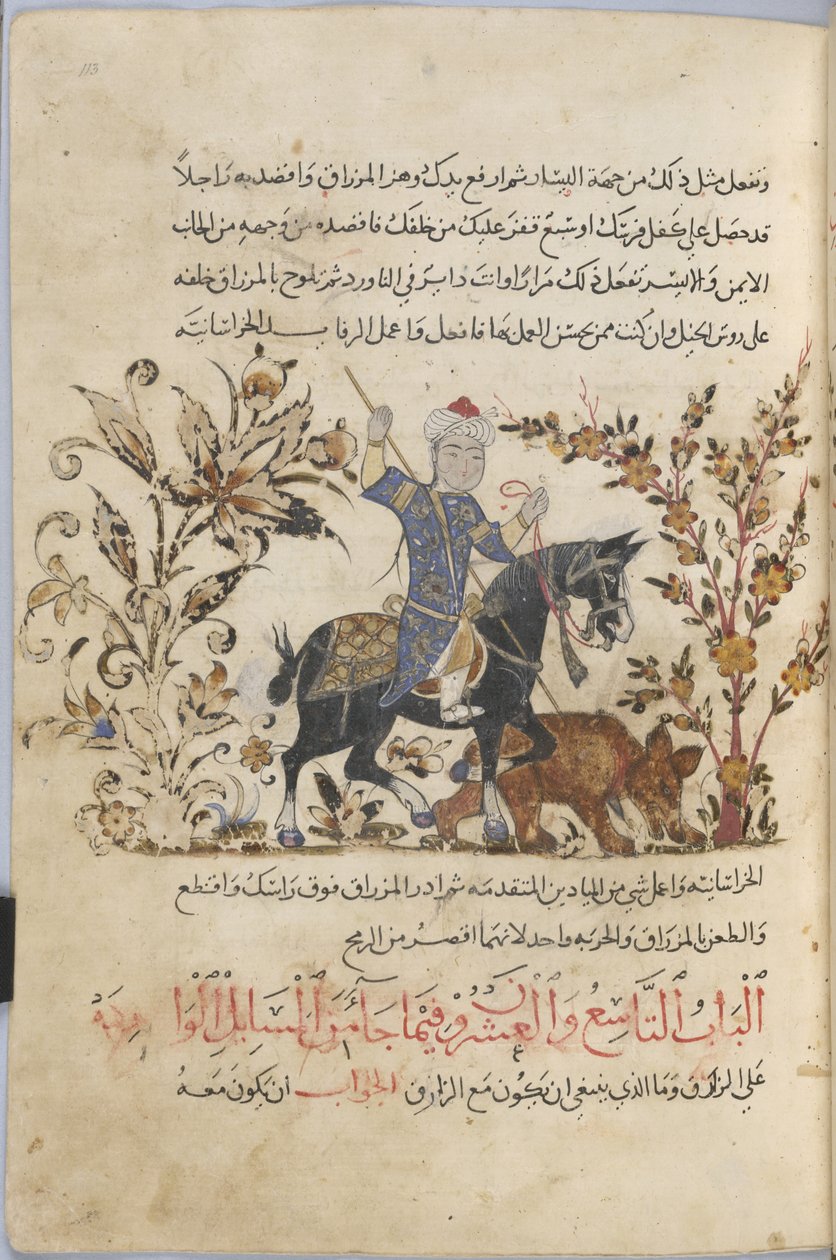 113
وتفعل مثل ذلك من جهة اليسار ثم ارفع يدك وهز المزراق واقصد به راجلاً
قد حصل علي غفل فرسك او سبع قفز عليك من خلفك فاقصده من وجهه من الجانب
الايمن والايسر تفعل ذلك مرارًا وانت داير في الناورد ثم تلوح بالمزراق خلفه
علي روس الخيل وان كنت ممن يحسن العمل بها فافعل واعمل الخراسانيه
الخراسانيه واعمل شي من الميادين المتقدمه ثم ادر المزراق فوق راسك واقطع
والطعن بالمزراق والحربه واحد لانهما اقصر من الرمح
الباب التاسع والعشرون فيما جاء من المسايل الواردة
علي الزارق وما الذي ينبغي ان يكون مع الزارق الجواب أن يكون معه